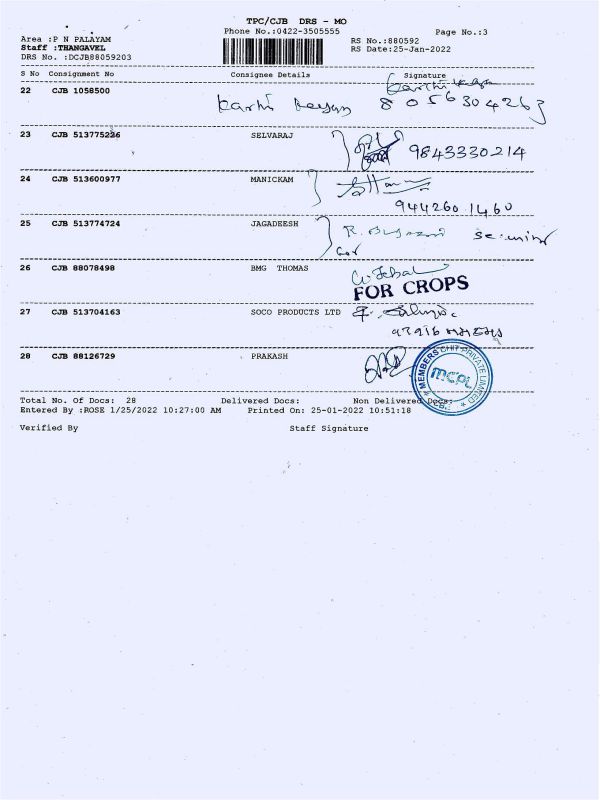 TPC/CJB DRS - MO
Phone No.:0422-3505555
Page No.:3
Area :P N PALAYAM
RS No.:880592
Staff :THANGAVEL
RS Date:25-Jan-2022
DRS No. :DCJB88059203
S No Consignment No Consignee Details Signature
22 CJB 1058500
8056304263
23 CJB 513775236 SELVARAJ
9843330214
24 CJB 513600977 MANICKAM
9442601460
25 CJB 513774724 JAGADEESH
26 CJB 88078498 BMG THOMAS
FOR CROPS
27 CJB 513704163 SOCO PRODUCTS LTD
28 CJB 88126729 PRAKASH
MEMBERS CHIT PRIVATE LIMITED
MCPL
CBE
Total No. Of Docs: 28 Delivered Docs: Non Delivered Docs:
Entered By :ROSE 1/25/2022 10:27:00 AM Printed On: 25-01-2022 10:51:18
Verified By Staff Signature